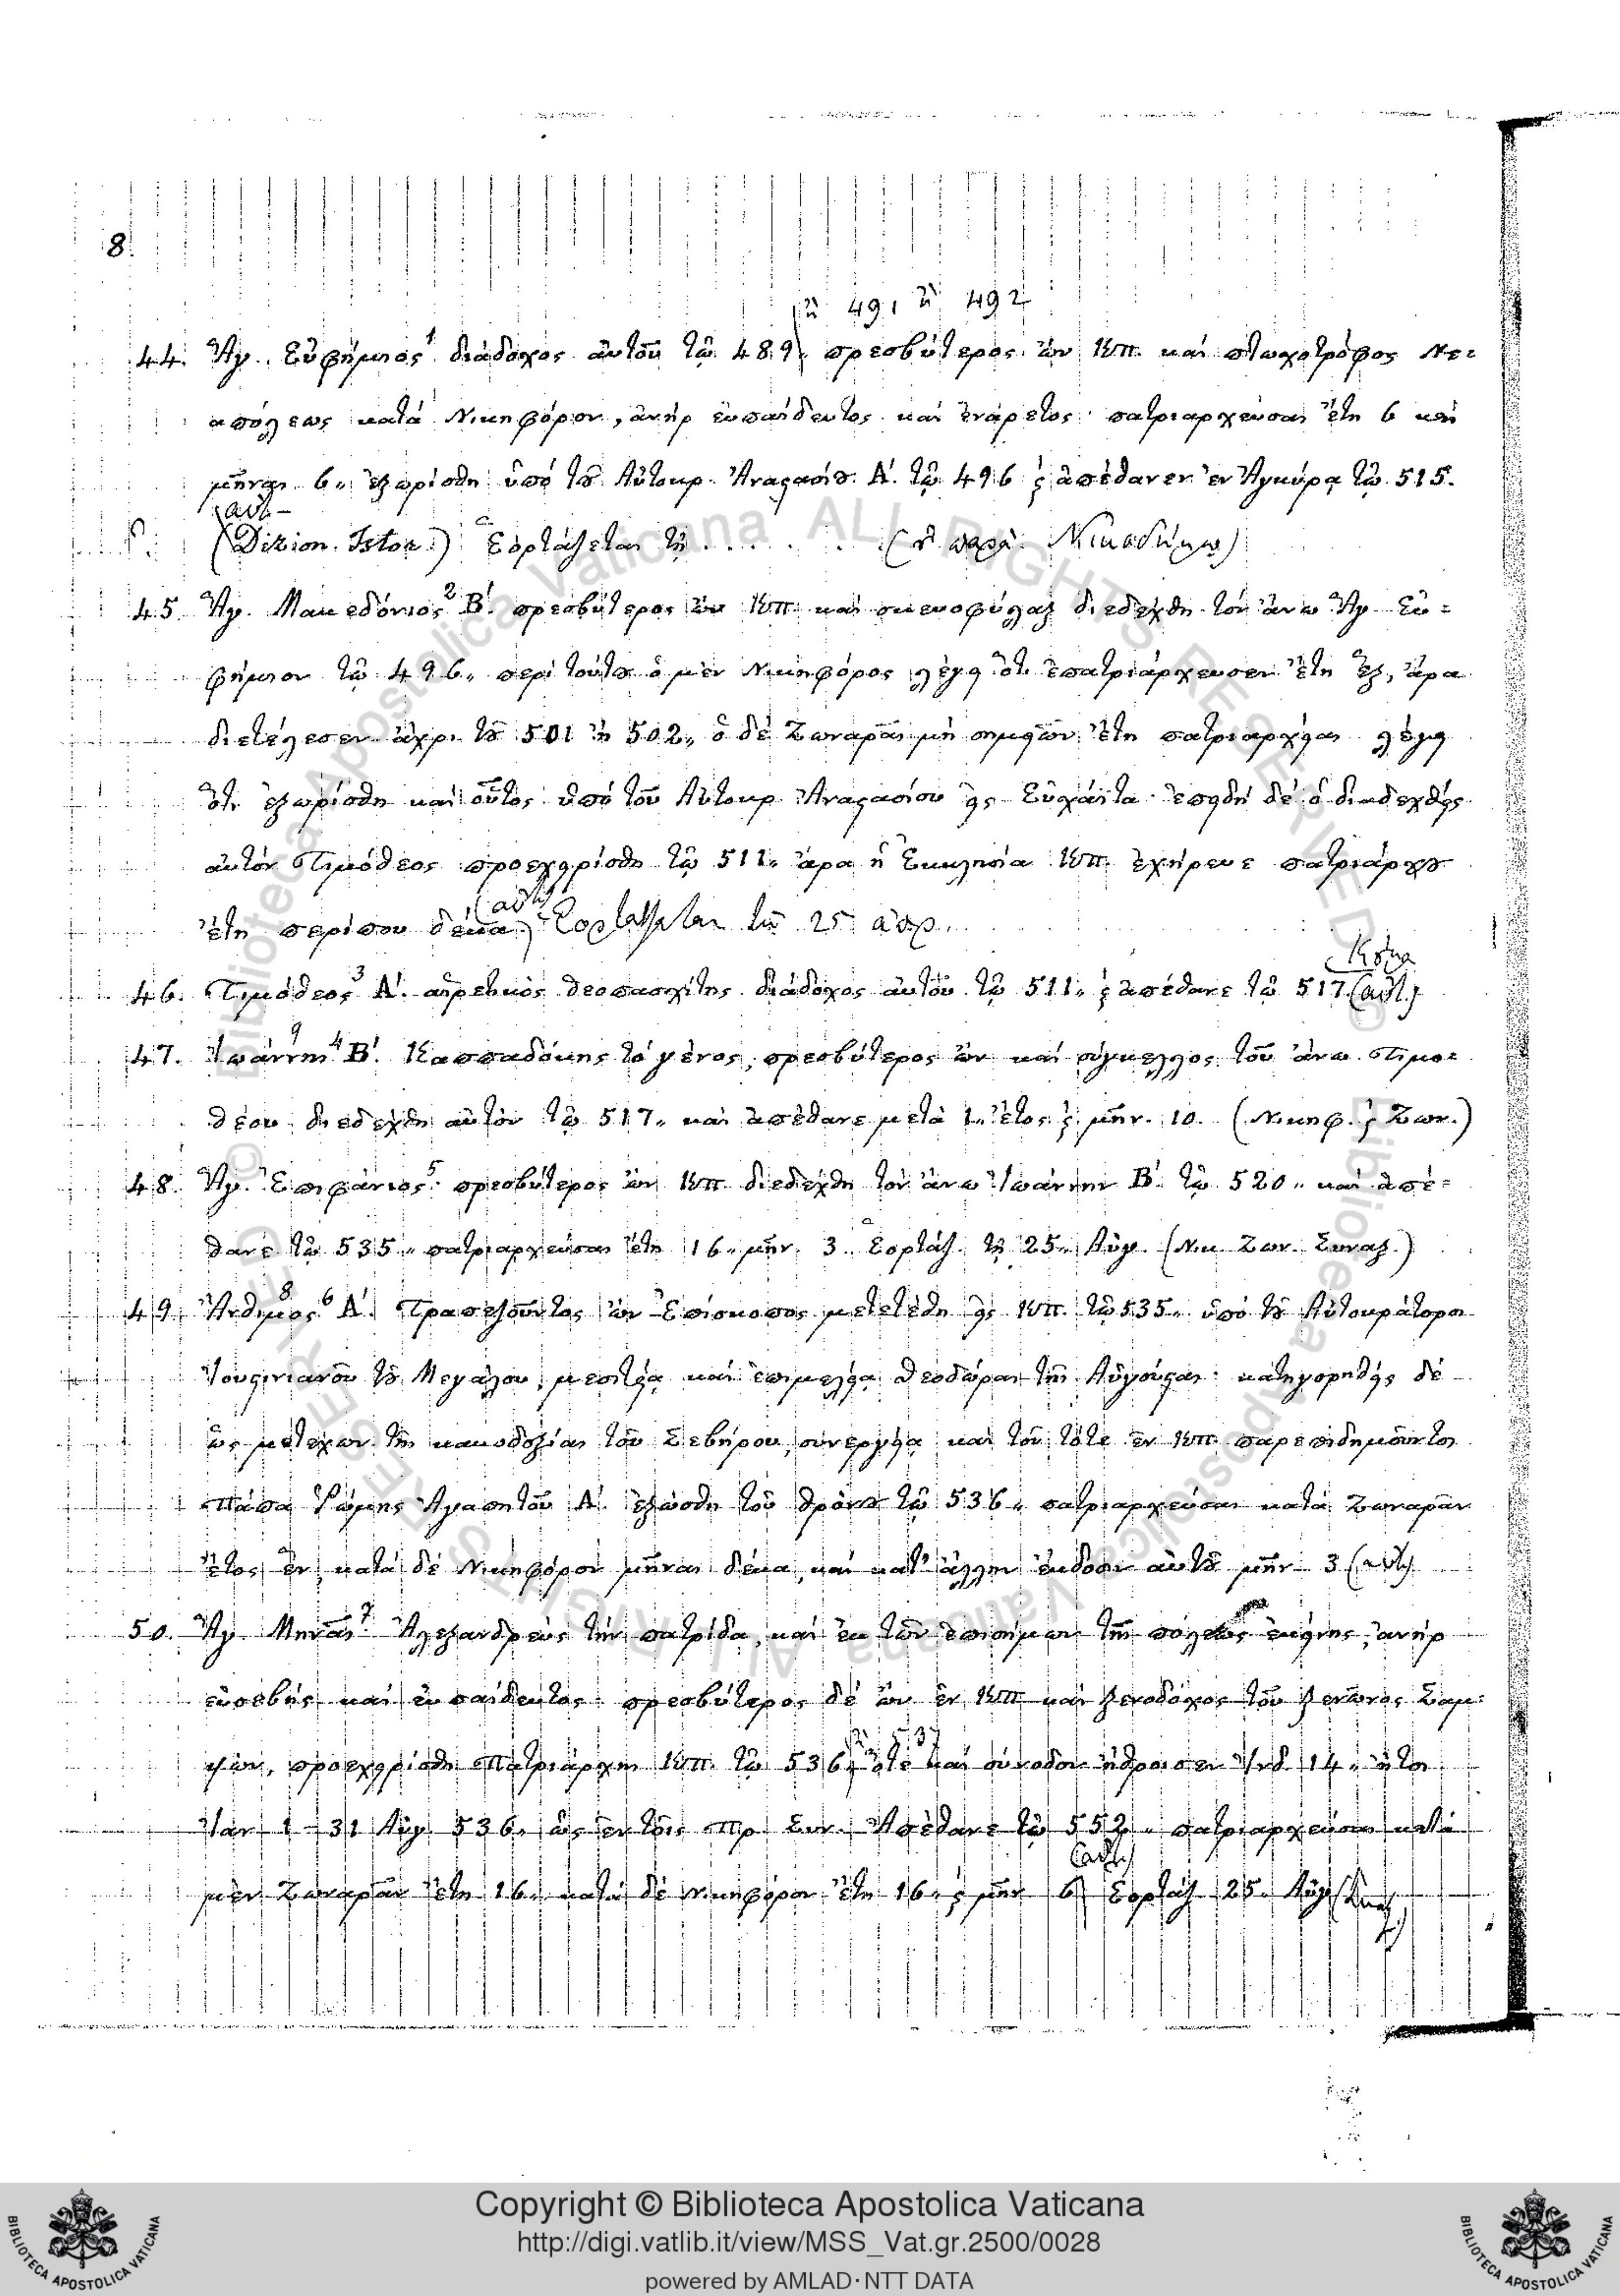 8.
ἢ 491 ἢ 492
44. Ἅγ. Εὐφήμιος¹ διάδοχος αὐτοῦ τῷ 489, πρεσβύτερος ὢν Κπ. καὶ πτωχοτρόφος Νε=
απόλεως κατὰ Νικηφόρον, ἀνὴρ εὐπαίδευτος καὶ ἐνάρετος· πατριαρχεύσας ἔτη 6 καὶ
μῆνας 6,, ἐξωρίσθη ὑπὸ τοῦ Αὐτοκρ. Ἀναστασίου Α΄. τῷ 496 καὶ ἀπέθανεν ἐν Ἀγκύρᾳ τῷ 515.
(Dizion. Istor.) Ἑορτάζεται τῇ . . . . . (παρὰ Νικοδήμῳ)
45. Ἅγ. Μακεδόνιος² Β΄. πρεσβύτερος ὢν Κπ. καὶ σκευοφύλαξ διεδέχθη τὸν ἄνω Ἅγ. Εὐ=
φήμιον τῷ 496,, περὶ τούτου ὁ μὲν Νικηφόρος λέγει ὅτι ἐπατριάρχευσεν ἔτη ἕξ, ἄρα
διετέλεσεν ἄχρι τοῦ 501 ἢ 502,, ὁ δὲ Ζωναρᾶς μὴ σημειῶν ἔτη πατριαρχείας λέγει
ὅτι ἐξωρίσθη καὶ οὗτος ὑπὸ τοῦ Αὐτοκρ. Ἀναστασίου εἰς Εὐχάϊτα· ἐπειδὴ δὲ ὁ διαδεχθεὶς
αὐτὸν Τιμόθεος προεχειρίσθη τῷ 511,, ἄρα ἡ Ἐκκλησία Κπ. ἐχήρευε πατριάρχου
ἔτη περίπου δέκα (αὐτ.) Ἑορτάζεται τῇ 25 ἀπρ.
46. Τιμόθεος³ Α΄. αἱρετικὸς θεοπασχίτης διάδοχος αὐτοῦ τῷ 511,, καὶ ἀπέθανε τῷ 517 (αὐτ.)
47. Ἰωάννης⁴ Β΄. Καππαδόκης τὸ γένος, πρεσβύτερος ὢν καὶ σύγκελλος τοῦ ἄνω Τιμο=
θέου διεδέχθη αὐτὸν τῷ 517,, καὶ ἀπέθανε μετὰ 1,, ἔτος καὶ μῆν. 10. (Νικηφ. καὶ Ζων.)
48. Ἅγ. Ἐπιφάνιος⁵ πρεσβύτερος ὢν Κπ. διεδέχθη τὸν ἄνω Ἰωάννην Β΄. τῷ 520,, καὶ ἀπέ=
θανε τῷ 535,, πατριαρχεύσας ἔτη 16,, μῆν. 3. Ἑορτάζ. τῇ 25,, Αὐγ. (Νικ. Ζων. Συναξ.)
49. Ἄνθιμος⁶ Α΄. Τραπεζοῦντος ὢν Ἐπίσκοπος μετετέθη εἰς Κπ. τῷ 535,, ὑπὸ τοῦ Αὐτοκράτορος
Ἰουστινιανοῦ τοῦ Μεγάλου, μεσιτείᾳ καὶ ἐπιμελείᾳ Θεοδώρας τῆς Αὐγούστας· κατηγορηθεὶς δὲ
ὡς μετέχων τῆς κακοδοξίας τοῦ Σεβήρου, συνεργείᾳ καὶ τοῦ τότε ἐν Κπ. παρεπιδημοῦντος
Πάπα Ῥώμης Ἀγαπητοῦ Α΄. ἐξώσθη τοῦ θρόνου τῷ 536,, πατριαρχεύσας κατὰ Ζωναρᾶν
ἔτος ἕν, κατὰ δὲ Νικηφόρον μῆνας δέκα, καὶ κατ' ἄλλην ἔκδοσιν αὐτοῦ μῆν. 3 (αὐτ.)
50. Ἅγ. Μηνᾶς⁷ Ἀλεξανδρεὺς τὴν πατρίδα, καὶ ἐκ τῶν ἐπισήμων τῆς πόλεως ἐκείνης, ἀνὴρ
εὐσεβὴς καὶ εὐπαίδευτος· πρεσβύτερος δὲ ὢν ἐν Κπ. καὶ ξενοδόχος τοῦ ξενῶνος Σαμ=
ψών, προεχειρίσθη Πατριάρχης Κπ. τῷ 536, ἢ 537 ὅτε καὶ σύνοδον ἤθροισεν Ἰνδ. 14,, ἤτοι
Ἰαν. 1 - 31 Αὐγ. 536, ὡς ἐν τοῖς πρ. Συν. Ἀπέθανε τῷ 552,, πατριαρχεύσας κατὰ
μὲν Ζωναρᾶν ἔτη 16,, κατὰ δὲ Νικηφόρον ἔτη 16,, καὶ μῆν. 6 (αὐτ.) Ἑορτάζ. 25,, Αὐγ. (Συναξ.)
Copyright © Biblioteca Apostolica Vaticana
http://digi.vatlib.it/view/MSS_Vat.gr.2500/0028
powered by AMLAD·NTT DATA